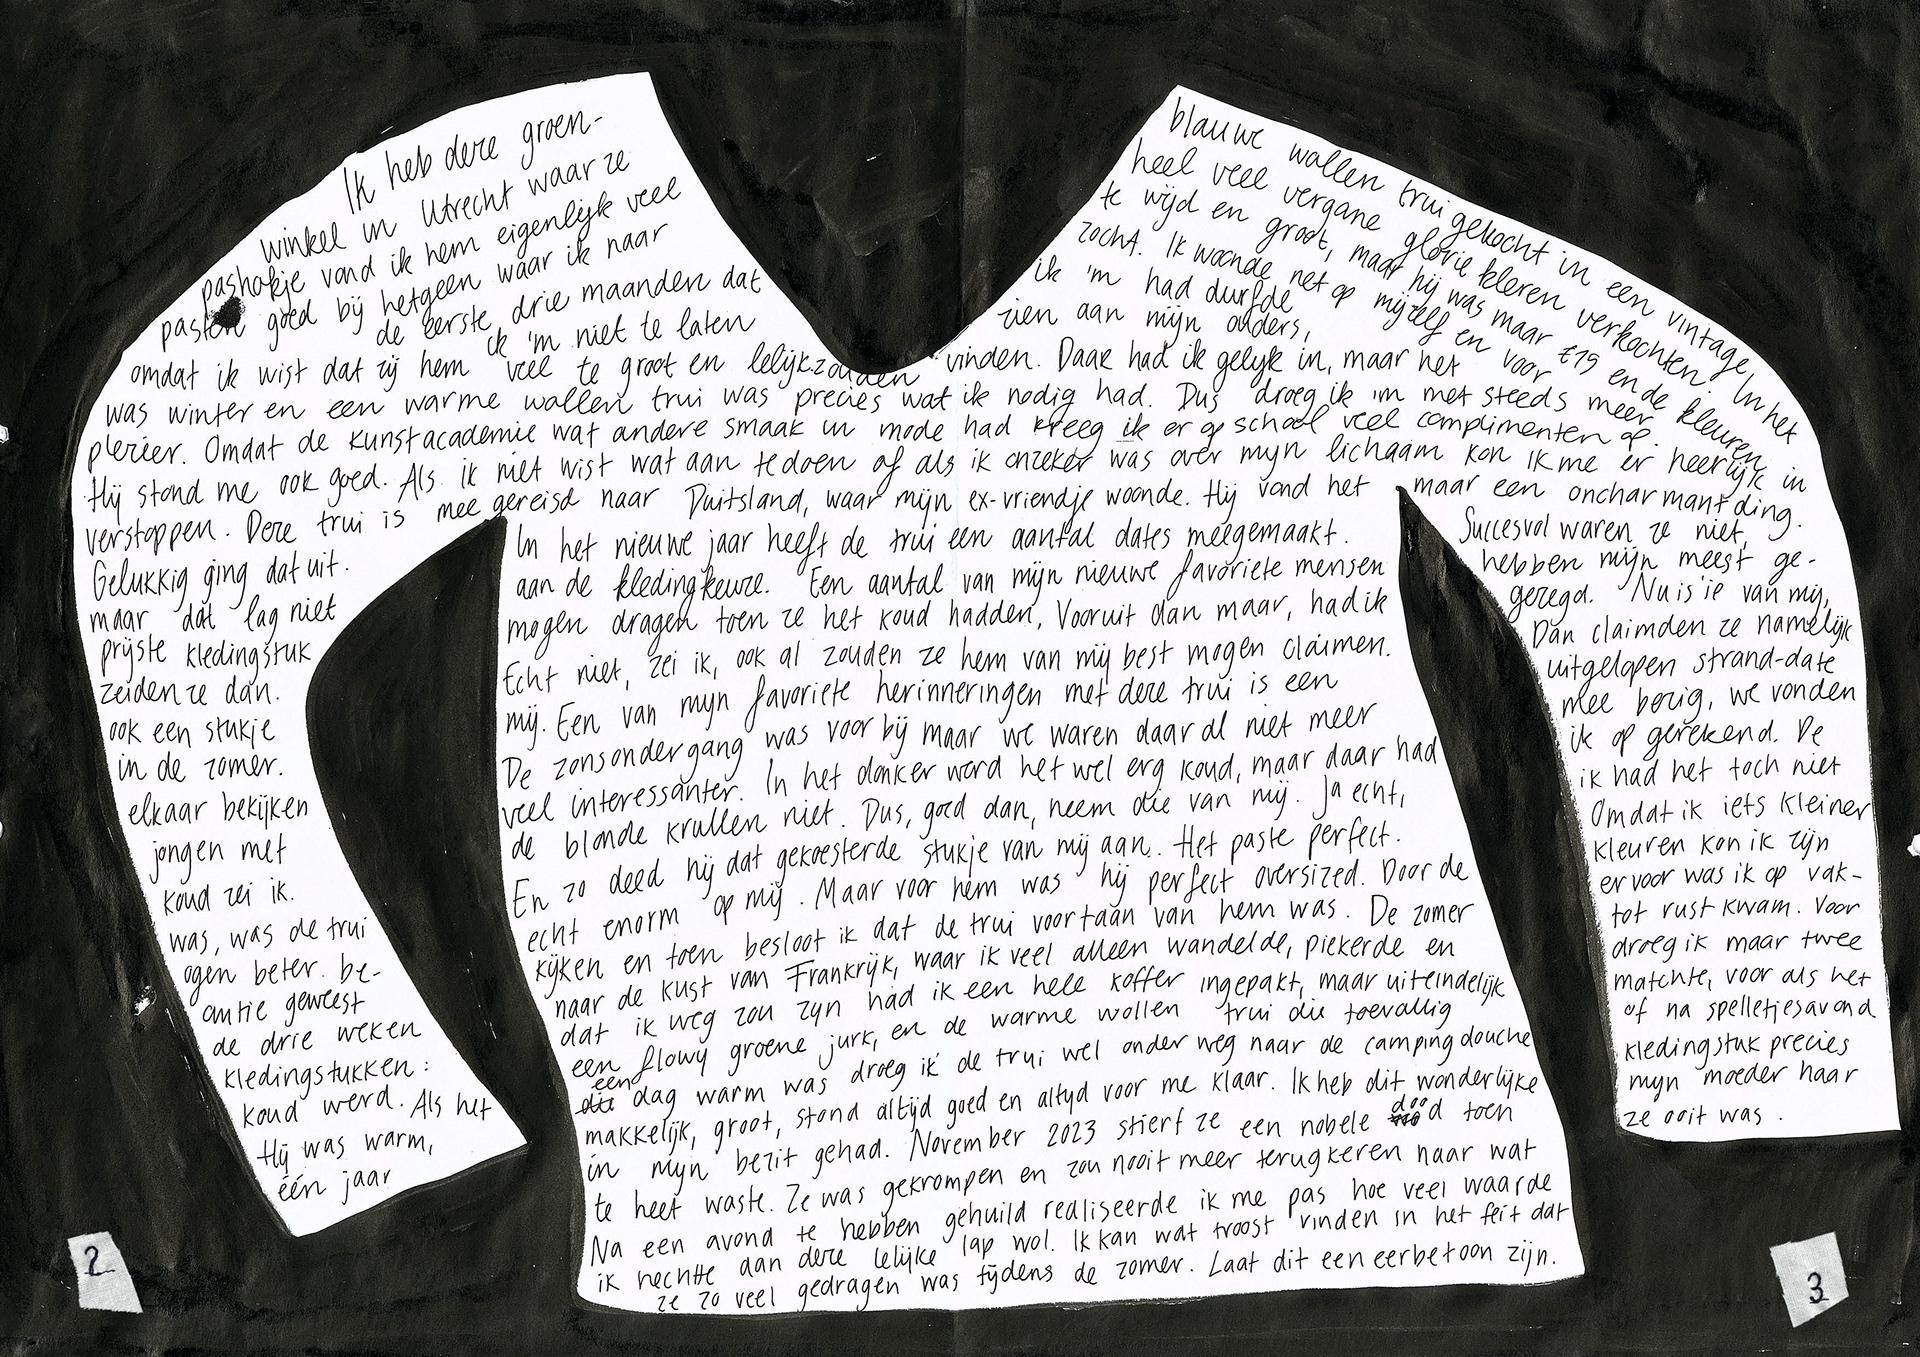 Ik heb deze groen-
blauwe wollen trui gekocht in een vintage
winkel in Utrecht waar ze
heel veel vergane glorie kleren verkochten. In het
pashokje vond ik hem eigenlijk veel
te wijd en groot, maar hij was maar €15 en de kleuren
pasten goed bij hetgeen waar ik naar
zocht. Ik woonde net op mijzelf en voor
de eerste drie maanden dat
ik 'm had durfde
ik 'm niet te laten
zien aan mijn ouders,
omdat ik wist dat zij hem veel te groot en lelijk zouden vinden. Daar had ik gelijk in, maar het
was winter en een warme wollen trui was precies wat ik nodig had. Dus droeg ik 'm met steeds meer
plezier. Omdat de kunstacademie wat andere smaak in mode had kreeg ik er op school veel complimenten op.
Hij stond me ook goed. Als ik niet wist wat aan te doen of als ik onzeker was over mijn lichaam kon ik me er heerlijk in
verstoppen. Deze trui is mee gereisd naar Duitsland, waar mijn ex-vriendje woonde. Hij vond het maar een oncharmant ding.
Gelukkig ging dat uit. In het nieuwe jaar heeft de trui een aantal dates meegemaakt. Succesvol waren ze niet,
maar dat lag niet aan de kledingkeuze. Een aantal van mijn nieuwe favoriete mensen hebben mijn meest ge-
prijste kledingstuk mogen dragen toen ze het koud hadden. Vooruit dan maar, had ik gezegd. Nu is 'ie van mij,
zeiden ze dan. Echt niet, zei ik, ook al zouden ze hem van mij best mogen claimen. Dan claimden ze namelijk
ook een stukje mij. Een van mijn favoriete herinneringen met deze trui is een uitgelopen strand-date
in de zomer. De zonsondergang was voorbij maar we waren daar al niet meer mee bezig, we vonden
elkaar bekijken veel interessanter. In het donker werd het wel erg koud, maar daar had ik op gerekend. De
jongen met de blonde krullen niet. Dus, goed dan, neem die van mij. Ja echt, ik had het toch niet
koud zei ik. En zo deed hij dat gekoesterde stukje van mij aan. Het paste perfect. Omdat ik iets kleiner
was, was de trui echt enorm op mij. Maar voor hem was hij perfect oversized. Door de kleuren kon ik zijn
ogen beter be- kijken en toen besloot ik dat de trui voortaan van hem was. De zomer ervoor was ik op vak-
antie geweest naar de kust van Frankrijk, waar ik veel alleen wandelde, piekerde en tot rust kwam. Voor
de drie weken dat ik weg zou zijn had ik een hele koffer ingepakt, maar uiteindelijk droeg ik maar twee
kledingstukken: een flowy groene jurk, en de warme wollen trui die toevallig matchte, voor als het
koud werd. Als het een dag warm was droeg ik de trui wel onderweg naar de campingdouche of na spelletjesavond
Hij was warm, makkelijk, groot, stond altijd goed en altijd voor me klaar. Ik heb dit wonderlijke kledingstuk precies
één jaar in mijn bezit gehad. November 2023 stierf ze een nobele dood toen mijn moeder haar
te heet waste. Ze was gekrompen en zou nooit meer terugkeren naar wat ze ooit was.
Na een avond te hebben gehuild realiseerde ik me pas hoe veel waarde
ik hechtte aan deze lelijke lap wol. Ik kan wat troost vinden in het feit dat
ze zo veel gedragen was tijdens de zomer. Laat dit een eerbetoon zijn.
2
3